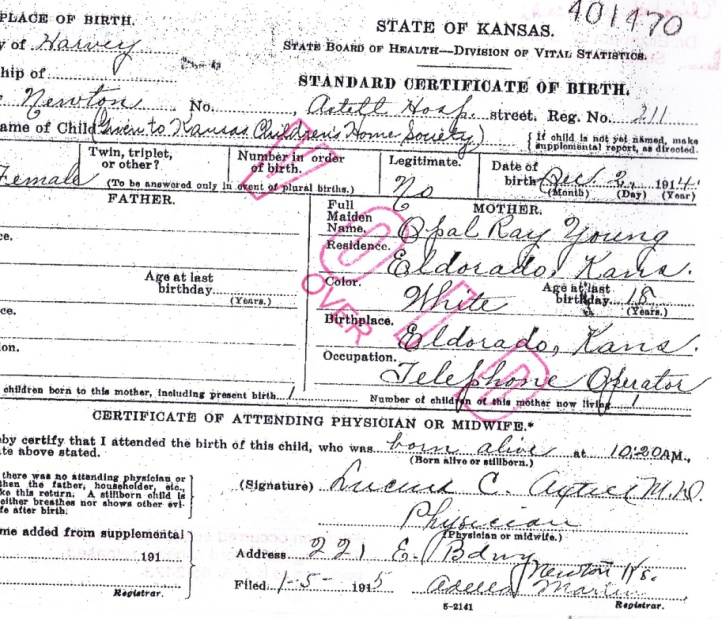 401470
PLACE OF BIRTH.
STATE OF KANSAS.
y of Harvey
STATE BOARD OF HEALTH—DIVISION OF VITAL STATISTICS.
hip of
STANDARD CERTIFICATE OF BIRTH.
Newton No. Axtell Hosp. street. Reg. No. 211
ame of Child (Given to Kansas Children's Home Society)
{ If child is not yet named, make
supplemental report, as directed.
Female
Twin, triplet,
or other?
Number in order
of birth.
(To be answered only in event of plural births.)
Legitimate.
No
Date of
birth Dec. 2, 1914
(Month) (Day) (Year)
FATHER.
MOTHER.
Full
Maiden
Name. Opal Ray Young
ce.
Residence. Eldorado, Kans.
Age at last
birthday
(Years.)
Color. White
Age at last
birthday 18
(Years.)
ce.
Birthplace. Eldorado, Kans.
ion.
Occupation. Telephone Operator
children born to this mother, including present birth. 1
Number of children of this mother now living 1
VOID
OVER
CERTIFICATE OF ATTENDING PHYSICIAN OR MIDWIFE.*
eby certify that I attended the birth of this child, who was born alive at 10:20 A M.,
te above stated.
(Born alive or stillborn.)
there was no attending physician or
then the father, householder, etc.,
ke this return. A stillborn child is
either breathes nor shows other evi-
fe after birth.
(Signature) Lucena C. Axtell M.D.
Physician
(Physician or midwife.)
me added from supplemental
191
Registrar.
Address 221 E. Bdwy
Newton Ks.
Filed 1-5- 1915 Adella Martin
Registrar.
5-2141